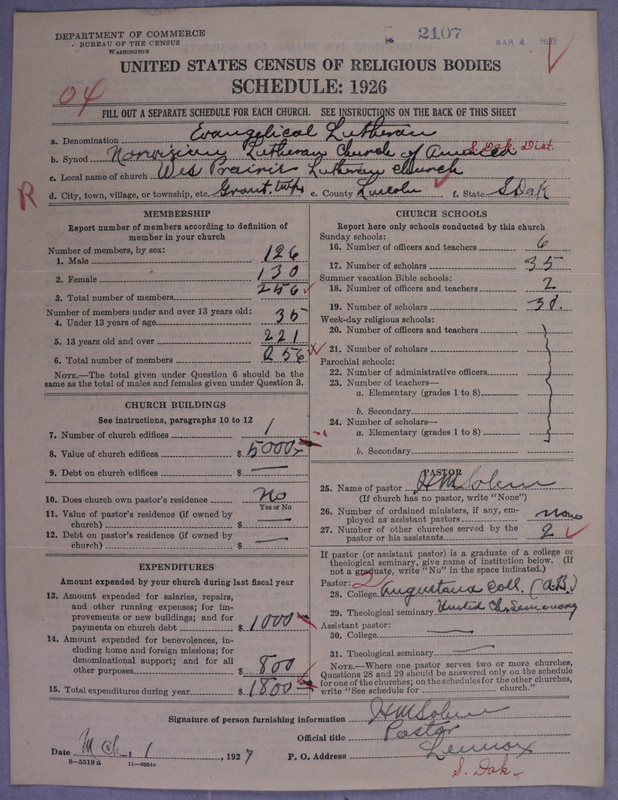 DEPARTMENT OF COMMERCE
BUREAU OF THE CENSUS
WASHINGTON
2107
MAR 4 1927
UNITED STATES CENSUS OF RELIGIOUS BODIES
SCHEDULE: 1926
04
FILL OUT A SEPARATE SCHEDULE FOR EACH CHURCH. SEE INSTRUCTIONS ON THE BACK OF THIS SHEET
a. Denomination Evangelical Lutheran
b. Synod Norwegian Lutheran Church of America S. Dak. Dist.
c. Local name of church West Prairie Lutheran Church
R
d. City, town, village, or township, etc. Grant twp e. County Lincoln f. State S Dak
MEMBERSHIP
Report number of members according to definition of
member in your church
Number of members, by sex:
1. Male 126
2. Female 130
3. Total number of members 256
Number of members under and over 13 years old:
4. Under 13 years of age 35
5. 13 years old and over 221
6. Total number of members 256
NOTE.—The total given under Question 6 should be the
same as the total of males and females given under Question 3.
CHURCH BUILDINGS
See instructions, paragraphs 10 to 12
7. Number of church edifices 1
8. Value of church edifices $ 5000
9. Debt on church edifices $ —
10. Does church own pastor's residence No
Yes or No
11. Value of pastor's residence (if owned by
church) $ —
12. Debt on pastor's residence (if owned by
church) $ —
EXPENDITURES
Amount expended by your church during last fiscal year
13. Amount expended for salaries, repairs,
and other running expenses; for im-
provements or new buildings; and for
payments on church debt $ 1000
14. Amount expended for benevolences, in-
cluding home and foreign missions; for
denominational support; and for all
other purposes $ 800
15. Total expenditures during year $ 1800
CHURCH SCHOOLS
Report here only schools conducted by this church
Sunday schools:
16. Number of officers and teachers 6
17. Number of scholars 35
Summer vacation Bible schools:
18. Number of officers and teachers 2
19. Number of scholars
Week-day religious schools:
20. Number of officers and teachers
21. Number of scholars
Parochial schools:
22. Number of administrative officers
23. Number of teachers—
a. Elementary (grades 1 to 8)
b. Secondary
24. Number of scholars—
a. Elementary (grades 1 to 8)
b. Secondary
PASTOR
25. Name of pastor H M Solem
(If church has no pastor, write "None")
26. Number of ordained ministers, if any, em-
ployed as assistant pastors none
27. Number of other churches served by the
pastor or his assistants 2
If pastor (or assistant pastor) is a graduate of a college or
theological seminary, give name of institution below. (If
not a graduate, write "No" in the space indicated.)
Pastor:
28. College Augustana Coll. (A.B.)
29. Theological seminary United Ch. Seminary
Assistant pastor:
30. College —
31. Theological seminary —
NOTE.—Where one pastor serves two or more churches,
Questions 28 and 29 should be answered only on the schedule
for one of the churches; on the schedules for the other churches,
write "See schedule for church."
Signature of person furnishing information H M Solem
Official title Pastor
Date Mch. 1, 1927 P. O. Address Lennox
S. Dak.
8—5518 a